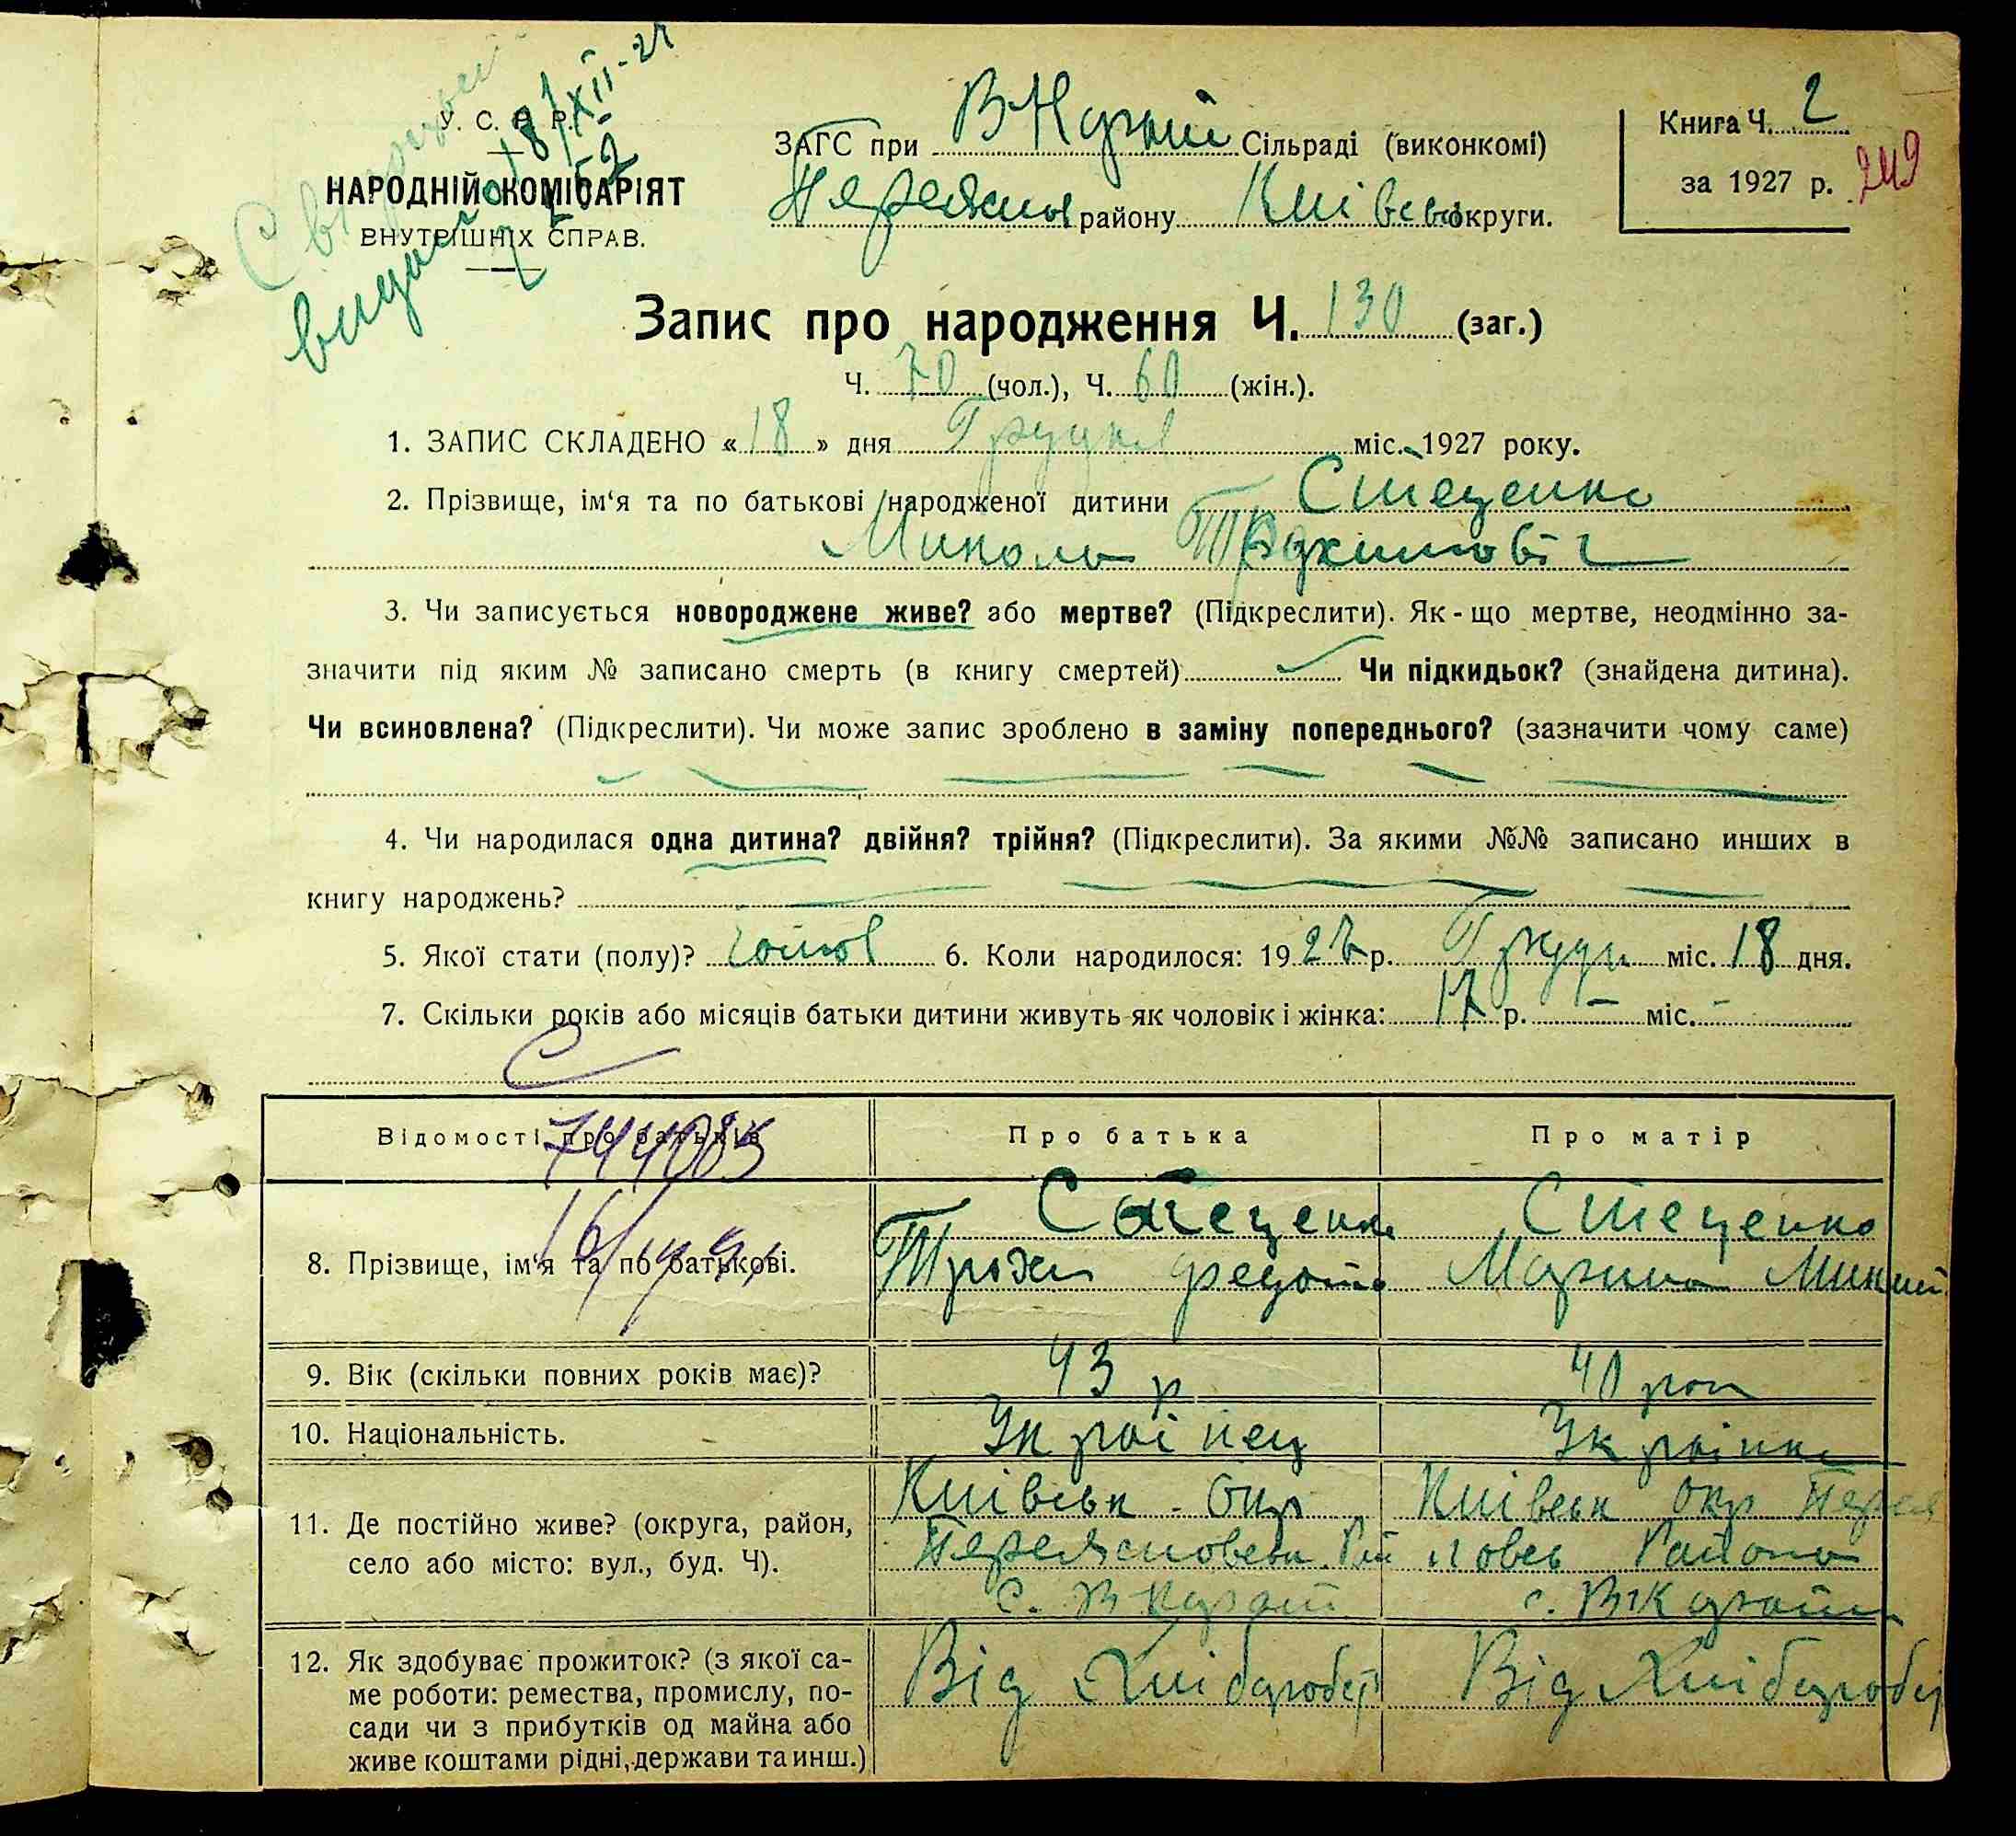 У. С. Р. Р.
НАРОДНІЙ КОМІСАРІЯТ
ВНУТРІШНІХ СПРАВ.
ЗАГС при В Кратій Сільраді (виконкомі)
Переясл району Київськ округи.
Книга Ч. 2
за 1927 р. 249
Запис про народження Ч. 130 (заг.)
Ч. 70 (чол.), Ч. 60 (жін.).
1. ЗАПИС СКЛАДЕНО «18» дня Грудня міс. 1927 року.
2. Прізвище, ім'я та по батькові народженої дитини Стеценко
Микола Трохимовіч
3. Чи записується новороджене живе? або мертве? (Підкреслити). Як-що мертве, неодмінно за-
значити під яким № записано смерть (в книгу смертей) Чи підкидьок? (знайдена дитина).
Чи всиновлена? (Підкреслити). Чи може запис зроблено в заміну попереднього? (зазначити чому саме)
4. Чи народилася одна дитина? двійня? трійня? (Підкреслити). За якими №№ записано инших в
книгу народжень?
5. Якої стати (полу)? чолов 6. Коли народилося: 1927 р. Грудн міс. 18 дня.
7. Скільки років або місяців батьки дитини живуть як чоловік і жінка: 17 р. — міс. —
Відомості про батьків
Про батька
Про матір
744085
8. Прізвище, ім'я та по батькові.
Стеценко
Трохи Федото
Стеценко
Марина Микит
9. Вік (скільки повних років має)?
43 р
40 рок
10. Національність.
Українец
Українка
11. Де постійно живе? (округа, район,
село або місто: вул., буд. Ч).
Київськ окр
Переясловськ Рай
с. В Каратй
Київськ окр Перея
словсь Района
с. В Карать
12. Як здобуває прожиток? (з якої са-
ме роботи: ремества, промислу, по-
сади чи з прибутків од майна або
живе коштами рідні, держави та инш.)
Від Хлібороб
Від Хлібороб